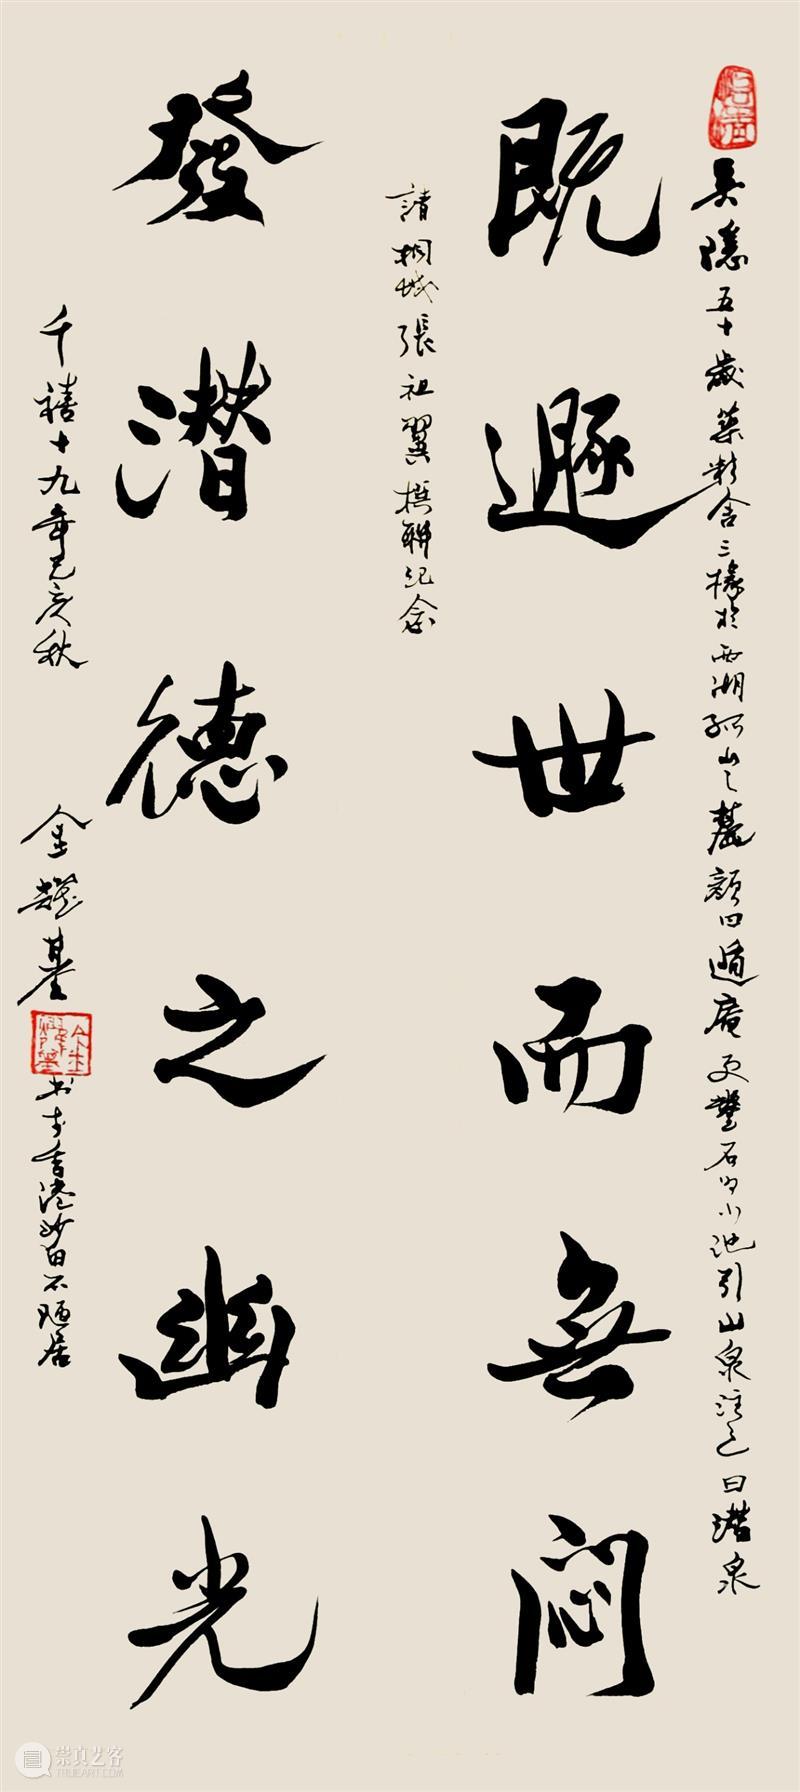 吴隱五十歲築精舍三椽於西湖孤山之麓顏曰遁庵又鑿石為小池引山泉注之曰潛泉
既遯世而無悶
請桐城張祖翼撰聯紀念
發潛德之幽光
千禧十九年己亥秋
金耀基
書于香港沙田不陋居
崇真艺客
WWW.TRUEART.COM